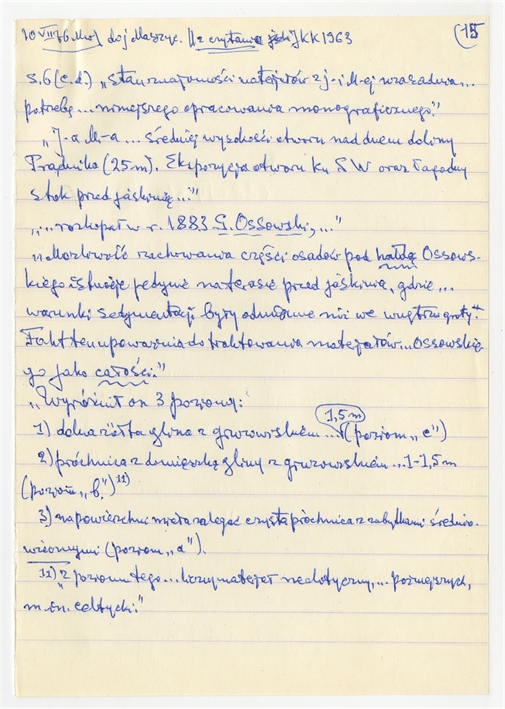 10 VII 76 do j. Maszyc. KK 1963 (15
s. 6 (c.d.) „Stan znajomości materjałów z j-i M-ej uzasadnia...
potrzebę... niniejszego opracowania monograficznego."
„J-a M-a... średniej wysokości otworu nad dnem doliny
Prądnika (25 m). Ekspozycja otworu ku SW oraz łagodny
stok przed jaskinią..."
„...rozkopał w r. 1883 G. Ossowski,..."
„Możliwość zachowania części osadów pod hałdą Ossows-
kiego istnieje jedynie na terasie przed jaskinią, gdzie...
warunki sedymentacji były odmienne niż we wnętrzu groty."
Fakt ten upoważnia do traktowania materjałów... Ossowskie-
go jako całości."
„Wyróżnił on 3 poziomy:
1) dolna żółta glina z gruzowiskiem... 1,5 m (poziom „c")
2) próchnica z domieszką gliny z gruzowiskiem... 1-1,5 m
(poziom „b")11)
3) na powierzchni miała zalegać czysta próchnica z zabytkami średnio-
wiecznymi (poziom „a").
11) z poziomu tego... liczny materjał neolityczny,... późniejszych,
m. in. celtycki."